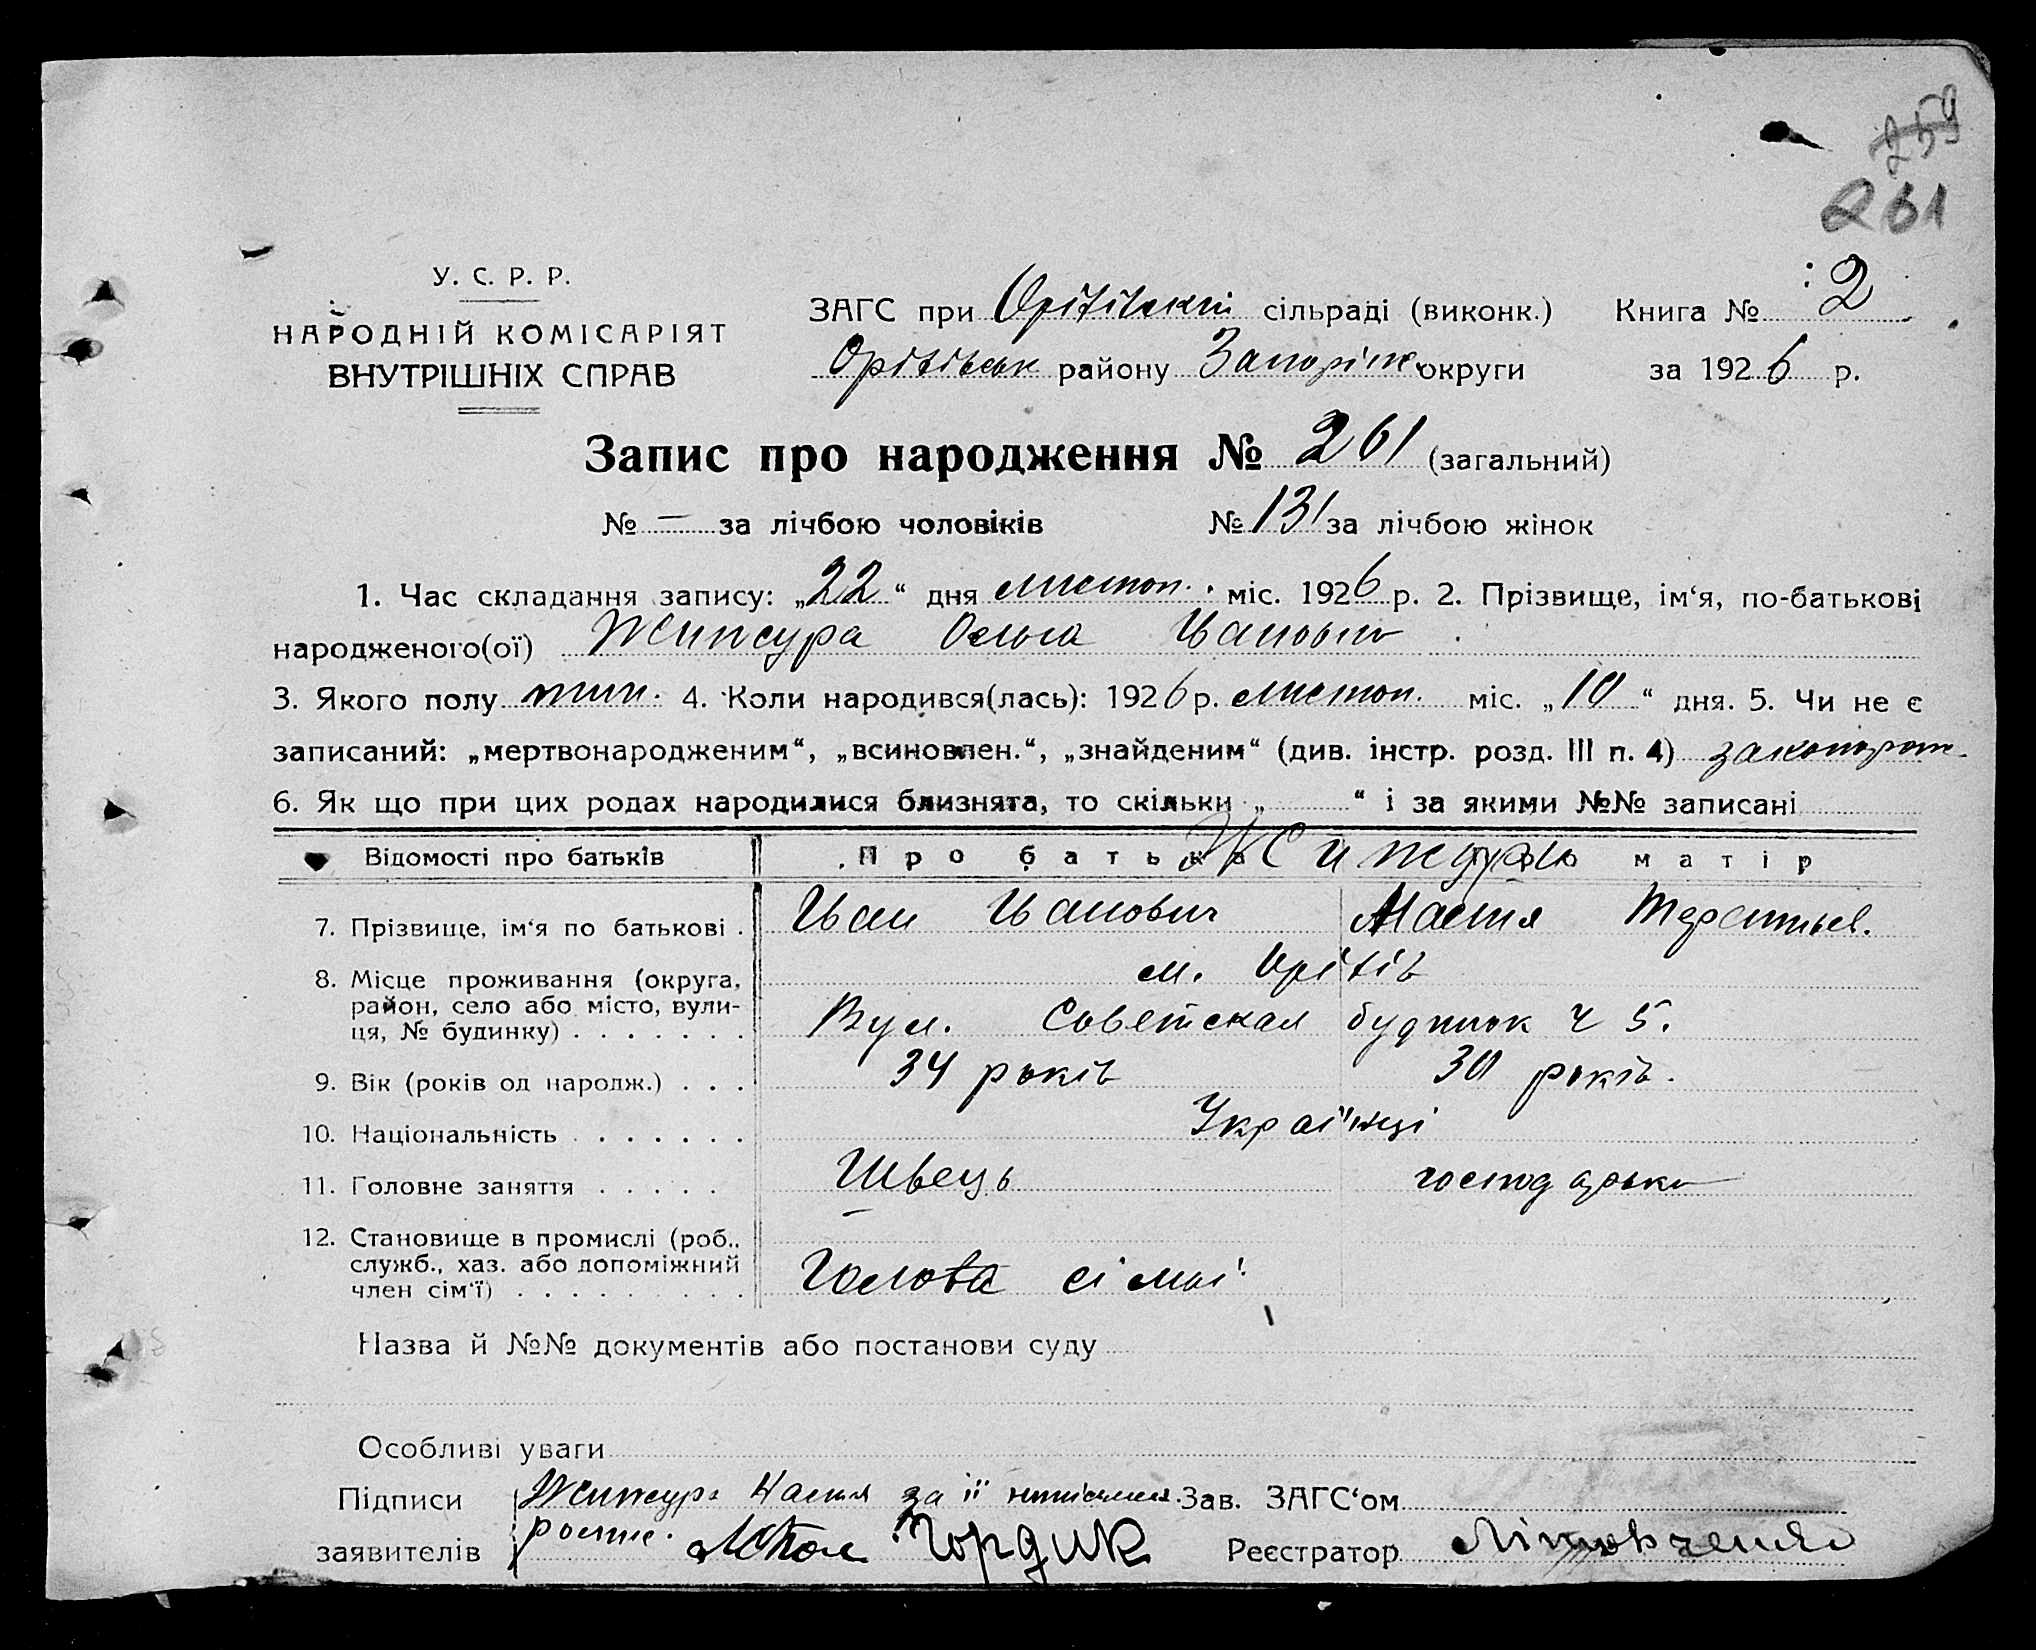 259
261
У. С. Р. Р.
НАРОДНІЙ КОМІСАРІЯТ
ВНУТРІШНІХ СПРАВ
ЗАГС при Оріхівській сільраді (виконк.) Книга № 2
Оріхівськ району Запоріж. округи за 1926 р.
Запис про народження № 261 (загальний)
№ — за лічбою чоловіків № 131 за лічбою жінок
1. Час складання запису: „22“ дня листоп. міс. 1926 р. 2. Прізвище, ім‘я, по-батькові
народженого(ої) Жижура Ольга Ивановна
3. Якого полу жін. 4. Коли народився(лась): 1926 р. листоп. міс. „10“ дня. 5. Чи не є
записаний: „мертвонародженим“, „всиновлен.“, „знайденим“ (див. інстр. розд. III п. 4)
6. Як що при цих родах народилися близнята, то скільки „ “ і за якими №№ записані
Відомості про батьків Про батька Жижури Про матір
7. Прізвище, ім‘я по батькові . Иван Иванович Настя Терентьев.
8. Місце проживання (округа, м. Оріхів
район, село або місто, вули-
ця, № будинку) . . . . . . . Вул. Советская будинок ч 5.
9. Вік (років од народж.) . . . 34 років 30 років.
10. Національність . . . . . . . Українці
11. Головне заняття . . . . . Швець господарька
12. Становище в промислі (роб..
служб., хаз. або допоміжний
член сім‘ї) . . . . . . . . . Голова сімьї
Назва й №№ документів або постанови суду
Особливі уваги
Підписи Жижура Настя за її Зав. ЗАГС‘ом
заявителів Гордик Реєстратор Літовченко